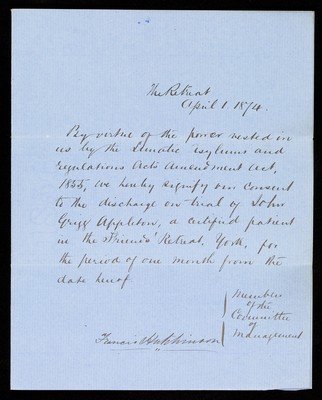 The Retreat
April 1 1874.
By virtue of the power vested in
us by the Lunatic asylums and
regulations Acts Amendment Act,
1855, we hereby signify our consent
to the discharge on trial of John
Grigg Appleton, a certified patient
in the Friends' Retreat, York, for
the period of one month from the
date hereof
Members
of the
Committee
of
Management
Francis Hutchinson